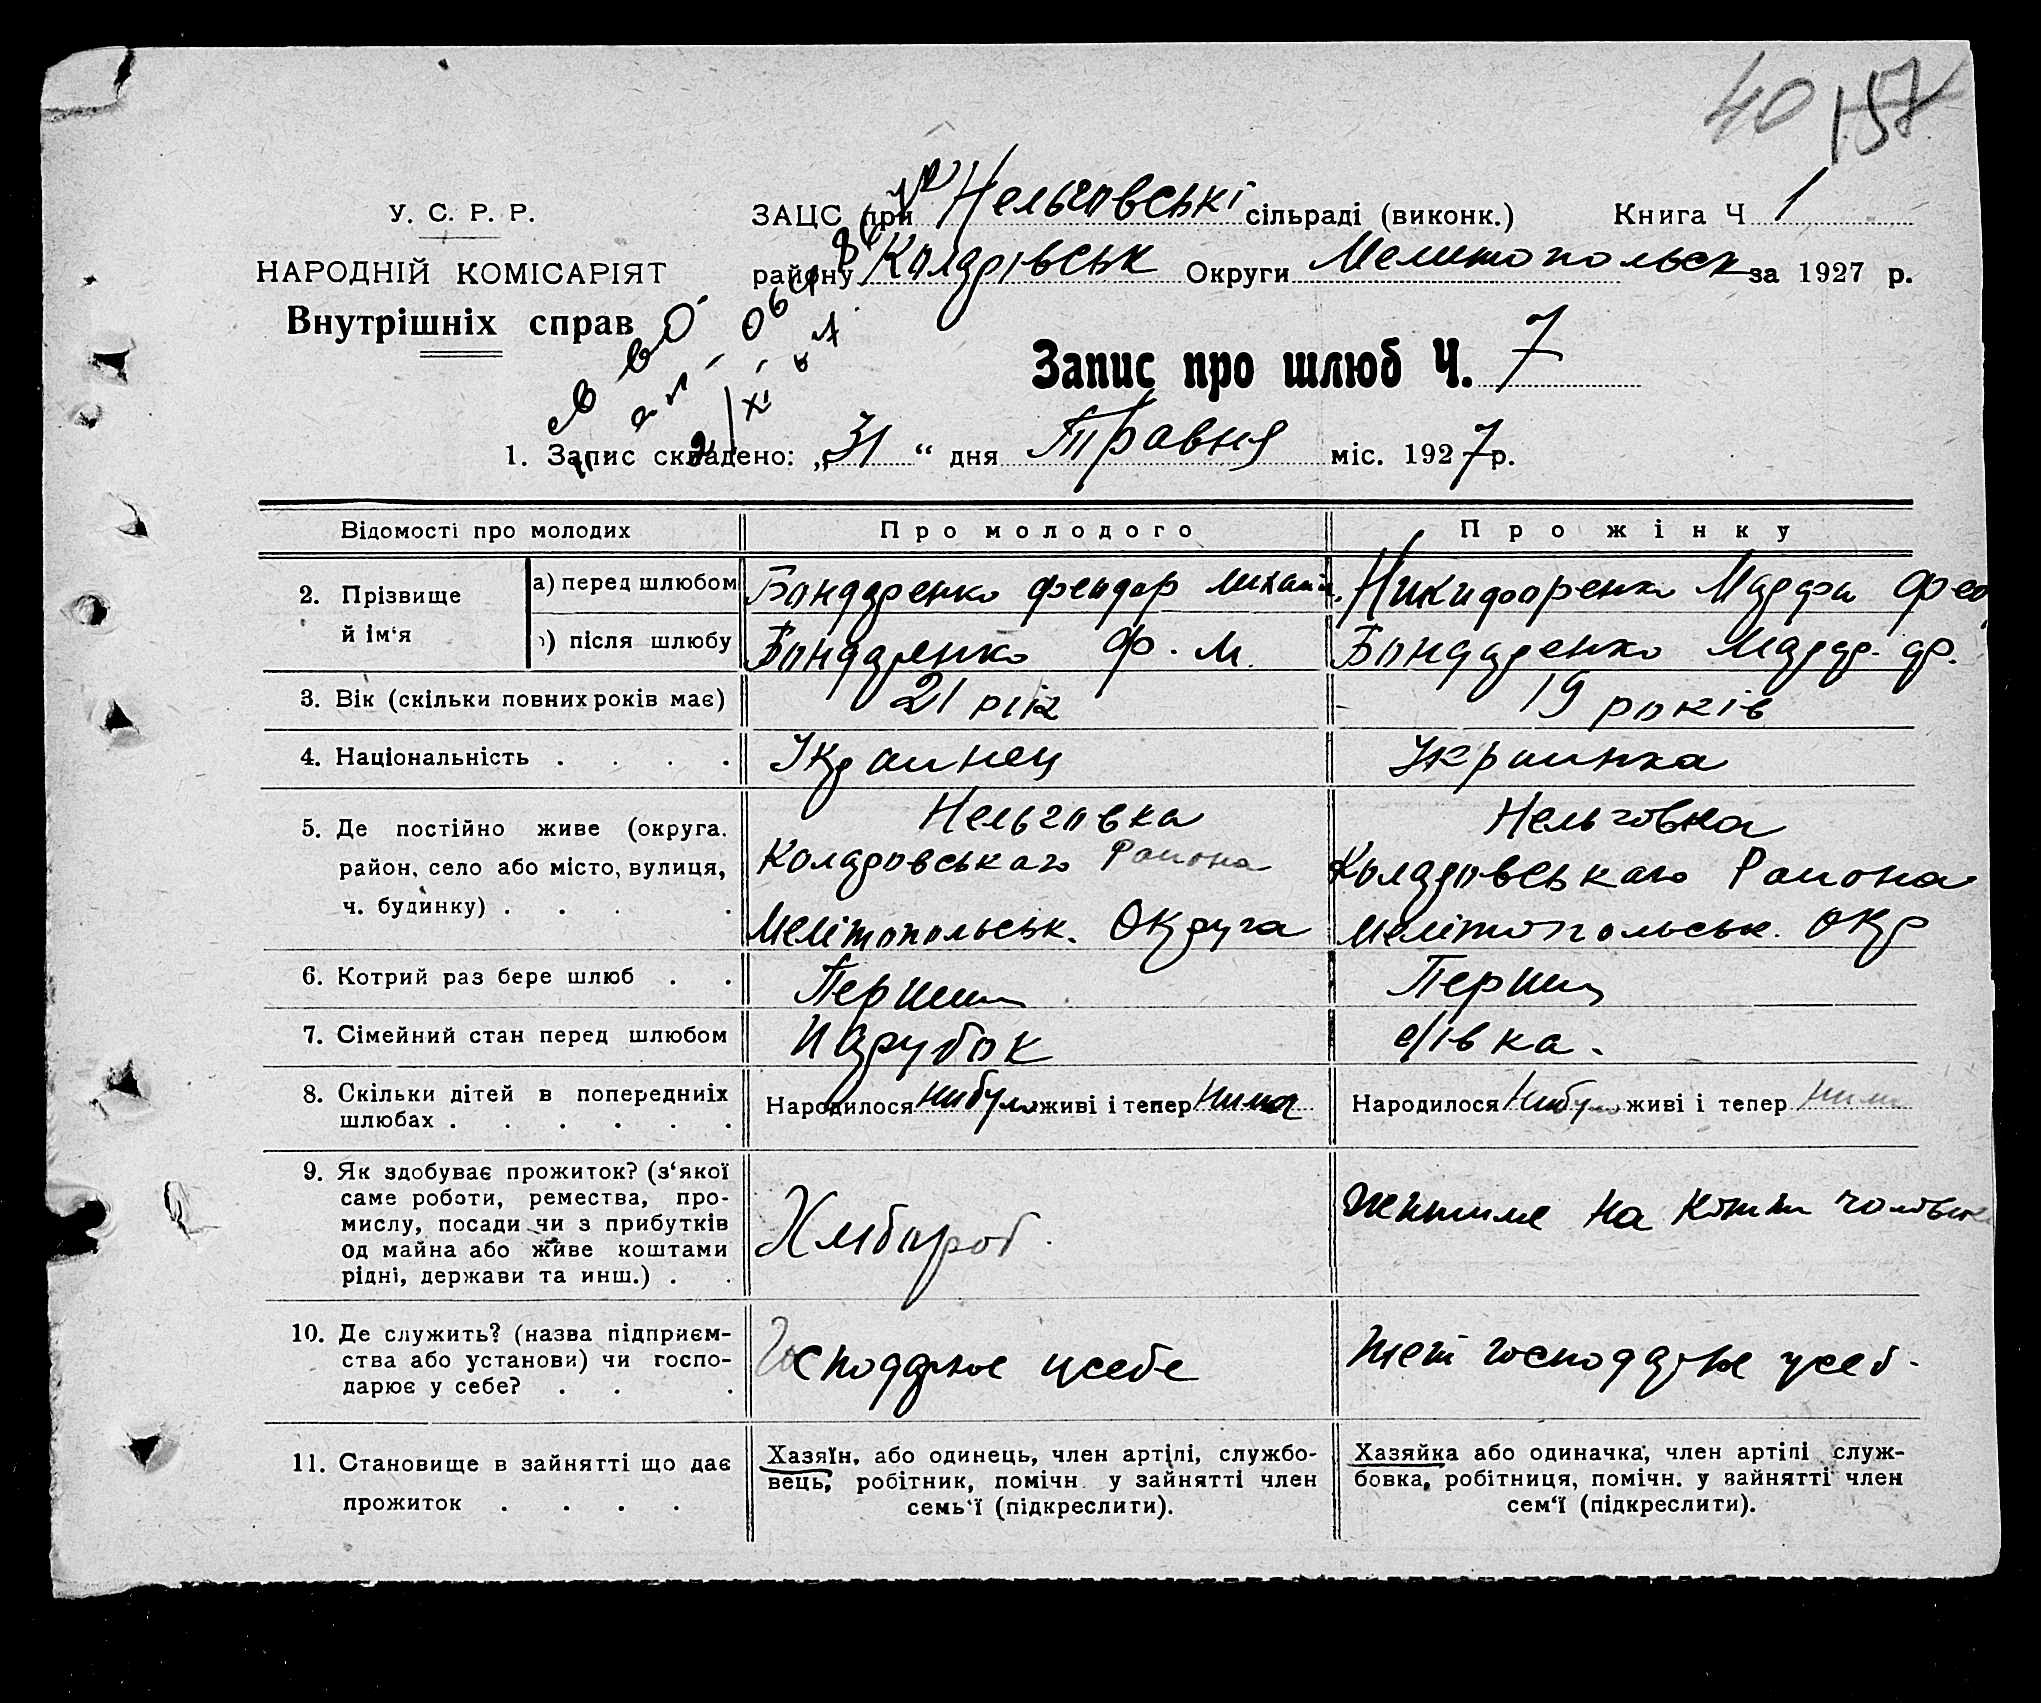 40 157
У. С. Р. Р.
НАРОДНІЙ КОМІСАРІЯТ
Внутрішніх справ
ЗАЦС при Нельговські сільраді (виконк.) Книга Ч 1
району Коларівськ Округи Мелитопольськ за 1927 р.
Запис про шлюб Ч. 7
1. Запис складено: „31“ дня Травня міс. 1927 р.
Відомості про молодих
Про молодого
Про жінку
2. Прізвище й ім‘я
а) перед шлюбом
Бондаренко Феодор Михаил.
Никифоренко Марфа Фео
) після шлюбу
Бондаренко Ф. М.
Бондаренко Марф. Ф.
3. Вік (скільки повних років має)
21 рік
19 років
4. Національність . . . .
Украинец
Украинка
5. Де постійно живе (округа,
район, село або місто, вулиця,
ч. будинку) . . . .
Нельговка
Коларовськаго Района
Мелітопольськ. Округа
Нельговка
Коларовськаго Района
Мелітопольськ. Окр
6. Котрий раз бере шлюб . .
Перший
Перший
7. Сімейний стан перед шлюбом
Парубок
дівка.
8. Скільки дітей в попередниіх
шлюбах . . . . . .
Народилося нибуло живі і тепер нима
Народилося нибуло живі і тепер нима
9. Як здобуває прожиток? (з‘якої
саме роботи, ремества, про-
мислу, посади чи з прибутків
од майна або живе коштами
рідні, держави та инш.) . .
Хлибороб.
на кошти
10. Де служить? (назва підприєм-
ства або установи) чи госпо-
дарює у себе? . . .
Господарює усебе
теж господарює усеб.
11. Становище в зайнятті що дає
прожиток . . . .
Хазяїн, або одинець, член артілі, службо-
вець, робітник, помічн. у зайнятті член
семь‘ї (підкреслити).
Хазяйка або одиначка, член артілі служ-
бовка, робітниця, помічн. у зайнятті член
сем‘ї (підкреслити).